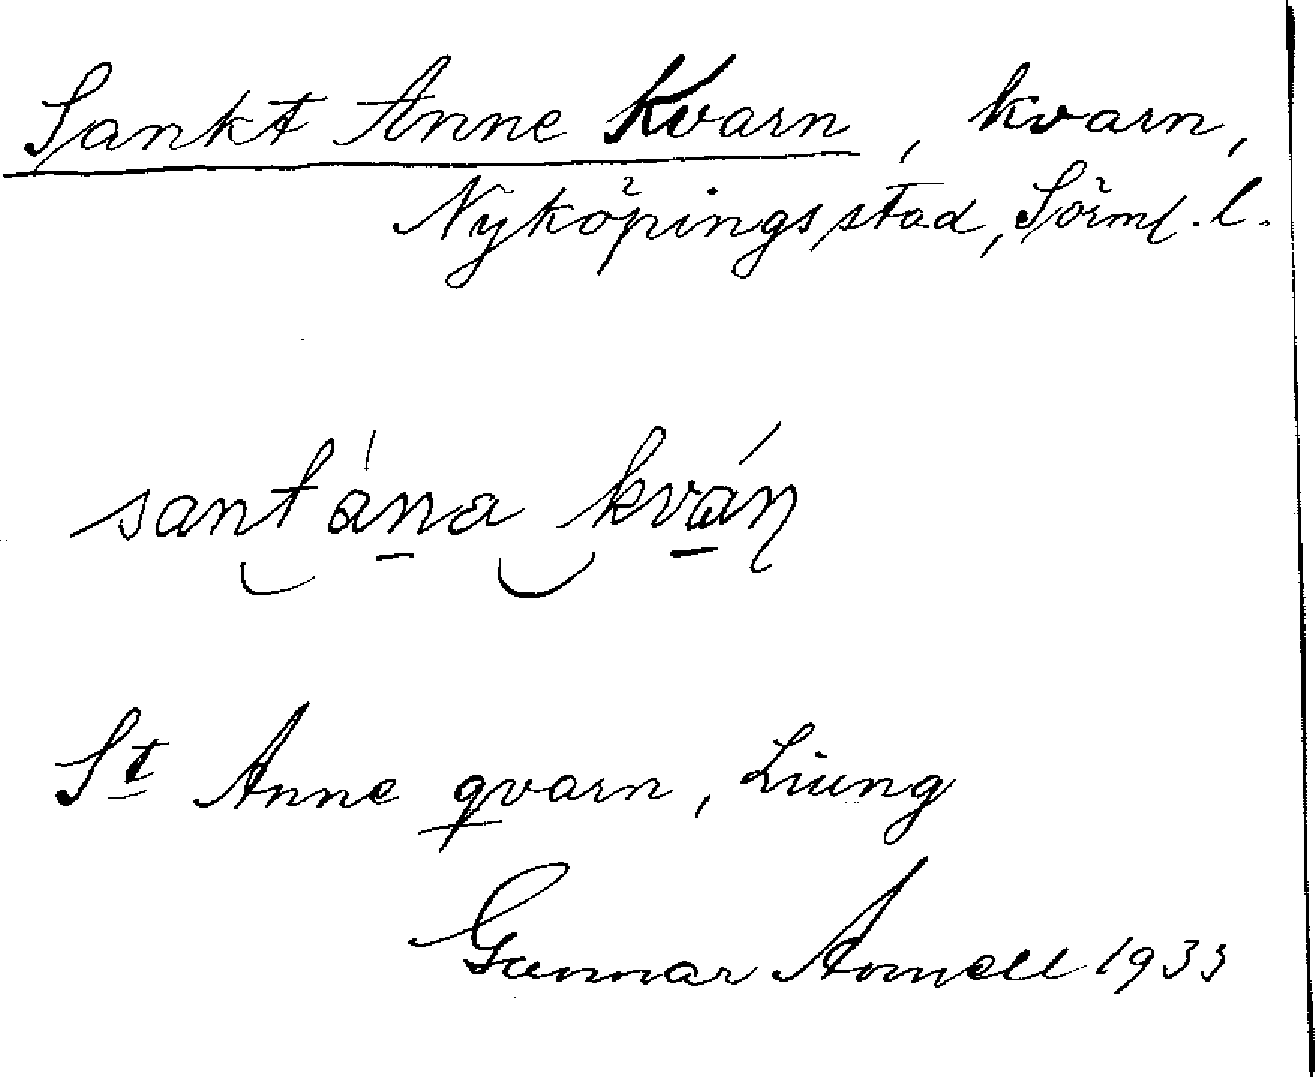 Sankt Anne Kvarn, kvarn,
Nyköpings stad, Sörml. l.
sant ána kván
St Anne qvarn, Liung
Gunnar Arnell 1933